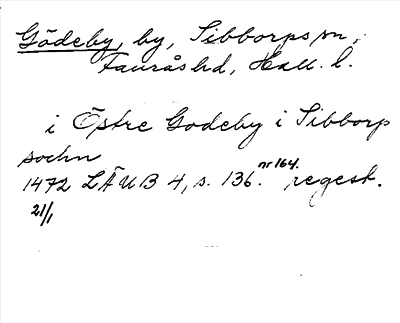 Gödeby, by, Sibborps sn,
Fauråshd, Hall. l.
i Östre Godeby i Sibborp
sochn
1472 LÄUB 4, s. 136. nr 164. regest.
21/1